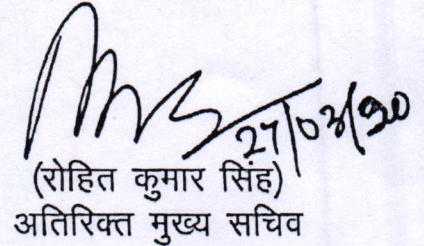 27/03/20
(रोहित कुमार सिंह)
अतिरिक्त मुख्य सचिव